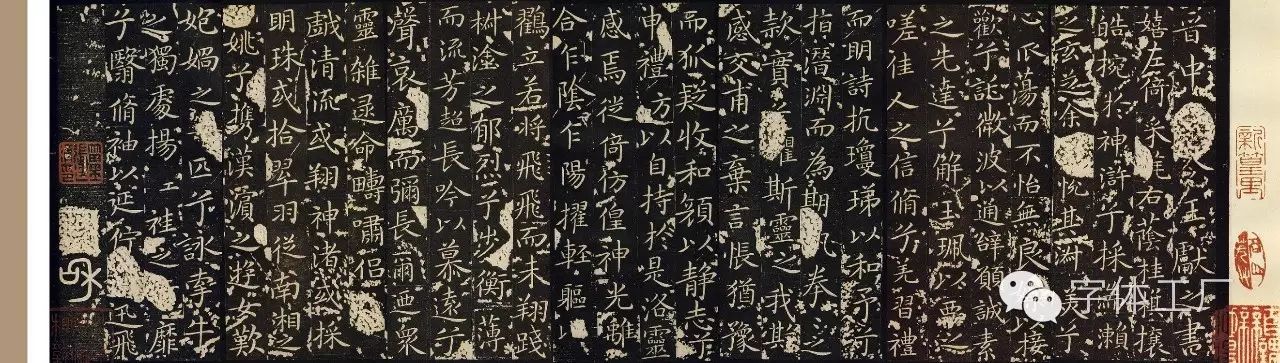 晉中令王獻之書
嬉左倚采旄右蔭桂旗攘
皓捥於神滸兮採瀨
之玄芝余悅其淑美兮
心振蕩而不怡無良以接
歡兮託微波以通辭願誠素
之先達兮解玉珮以要之
嗟佳人之信脩兮羌習禮
而明詩抗瓊珶以和予兮
指潛淵而為期執拳之
款實懼斯靈之我欺
感交甫之棄言悵猶豫
而狐疑收和顏以靜志兮
申禮防以自持於是洛靈
感焉徙倚彷徨神光離
合乍陰乍陽擢輕軀以
鶴立若將飛飛而未翔踐
椒塗之郁烈兮步衡薄
而流芳超長吟以慕遠兮
聲哀厲而彌長爾迺眾
靈雜遝命疇嘯侶
戲清流或翔神渚或採
明珠或拾翠羽從南湘之
姚兮攜漢濱之遊女歎
媧之匹兮詠牽牛
之獨處揚袿之靡
兮翳脩袖以延佇迅飛
字体工厂